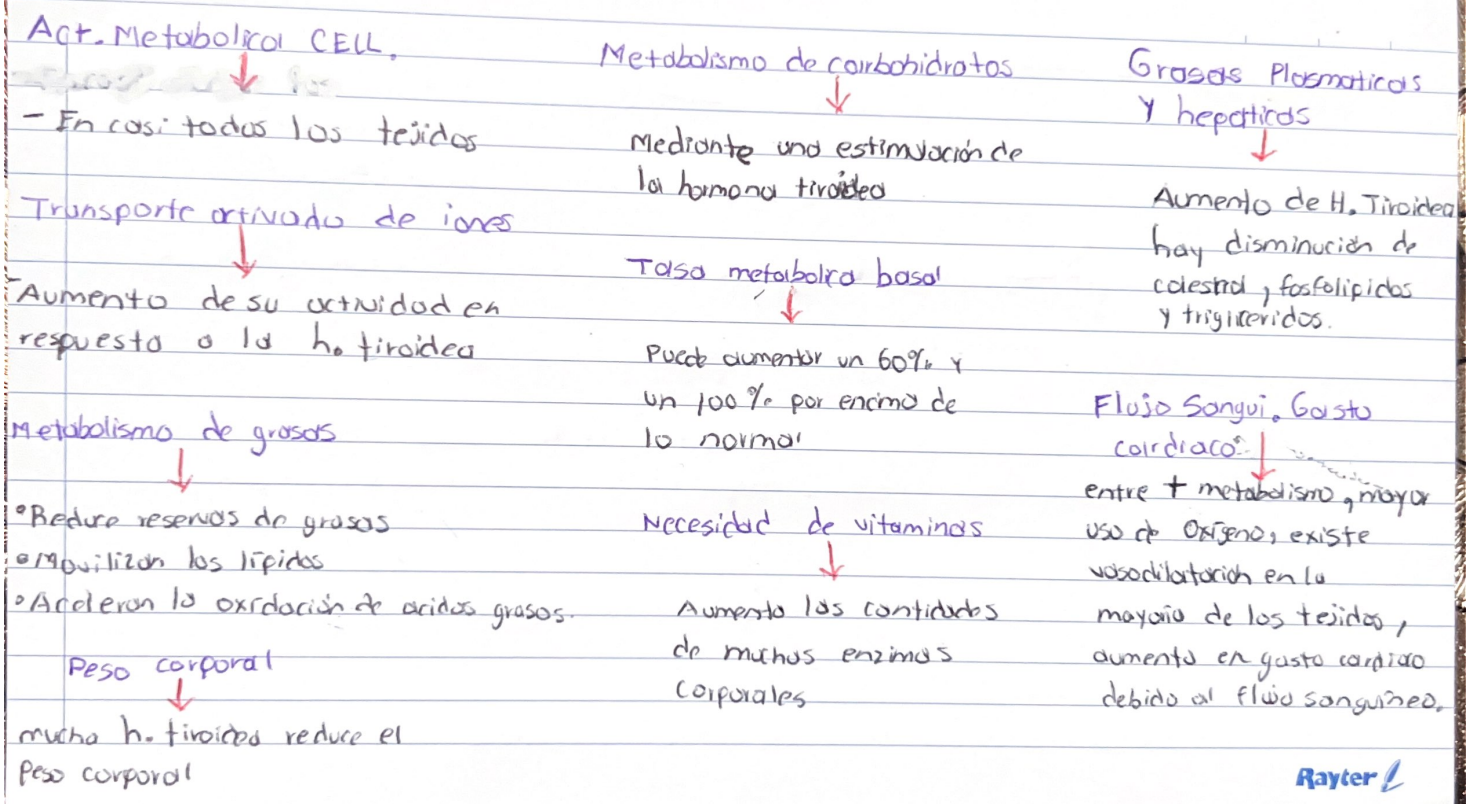 Act. Metabolica CELL.
- En casi todos los tejidos
Transporte activado de iones
- Aumento de su actividad en
respuesta a la h. tiroidea
Metabolismo de grasas
• Reduce reservas de grasas
• Movilizan los lípidos
• Aceleran la oxidación de acidos grasos.
Peso corporal
mucha h. tiroidea reduce el
Peso corporal
Metabolismo de carbohidratos
Mediante una estimulación de
la hormona tiroidea
Tasa metabolica basal
Puede aumentar un 60% y
un 100% por encima de
lo normal
Necesidad de vitaminas
Aumento las cantidades
de muchas enzimas
Corporales
Grasas Plasmaticas
Y hepaticas
Aumento de H. Tiroidea
hay disminución de
colestrol, fosfolipidos
y trigiceridos.
Flujo Sangui. Gasto
cardiaco:
entre + metabolismo, mayor
uso de Oxígeno, existe
vasodilatación en la
mayoria de los tejidos,
aumento en gasto cardiaco
debido al flujo sanguíneo.
Rayter